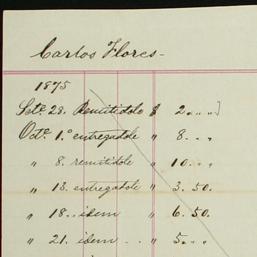 Carlos Flores-
1875
Setc. 28. Remitidole $ 2 " "
Octe. 1.o entregadole " 8 . . "
" 8. remitidole " 10 . . "
" 13. entregadole " 3. 50.
" 18.. idem " 6. 50.
" 21. idem . . " 5 . . "